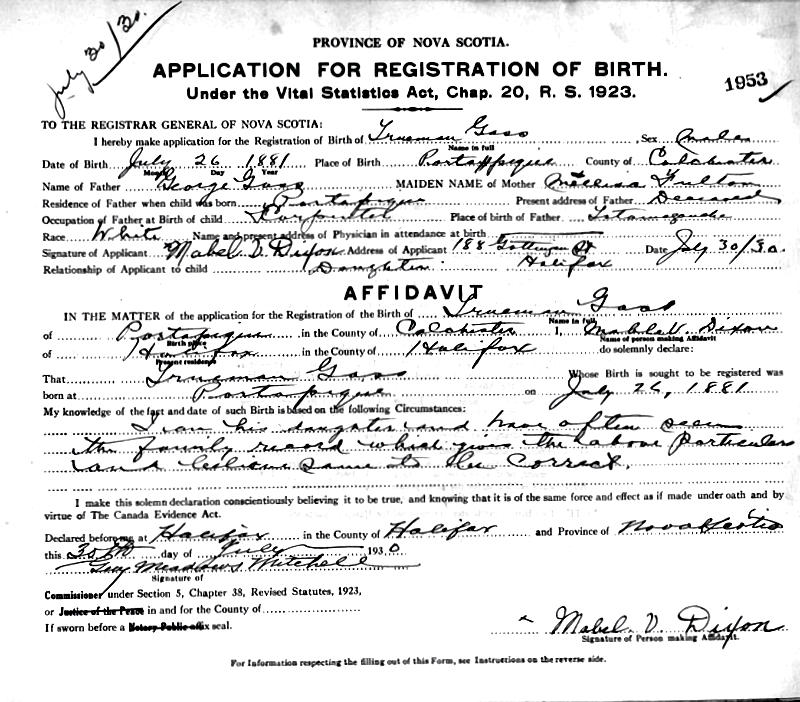 July 30/30.
PROVINCE OF NOVA SCOTIA.
APPLICATION FOR REGISTRATION OF BIRTH.
1953
Under the Vital Statistics Act, Chap. 20, R. S. 1923.
TO THE REGISTRAR GENERAL OF NOVA SCOTIA:
I hereby make application for the Registration of Birth of Trueman Gass , Sex Male
Name in full
Date of Birth July 26 1881 Place of Birth Portapique County of Colchester
Month Day Year
Name of Father George Gass MAIDEN NAME of Mother Mellissa Fulton
Residence of Father when child was born Portapique Present address of Father Deceased
Occupation of Father at Birth of child Carpenter Place of birth of Father Tatamagouche
Race White Name and present address of Physician in attendance at birth
Signature of Applicant Mabel V. Dixon Address of Applicant 188 Gottingen St Date July 30/30.
Halifax
Relationship of Applicant to child Daughter
AFFIDAVIT
IN THE MATTER of the application for the Registration of the Birth of Trueman Gass
Name in full
of Portapique in the County of Colchester I, Mable V. Dixon
Birth place Name of person making Affidavit
of Halifax in the County of Halifax do solemnly declare:
Present residence
That Trueman Gass Whose Birth is sought to be registered was
born at Portapique on July 26, 1881
My knowledge of the fact and date of such Birth is based on the following Circumstances:
I am his daughter and have often seen
the family record which gives the above particulars
and believe same to be correct.
I make this solemn declaration conscientiously believing it to be true, and knowing that it is of the same force and effect as if made under oath and by
virtue of The Canada Evidence Act.
Declared before me at Halifax in the County of Halifax and Province of Nova Scotia
this 30th day of July 1930
Guy Meadows Mitchell
Signature of
Commissioner under Section 5, Chapter 38, Revised Statutes, 1923,
or Justice of the Peace in and for the County of
If sworn before a Notary Public affix seal.
Mabel V. Dixon
Signature of Person making Affidavit.
For Information respecting the filling out of this Form, see Instructions on the reverse side.